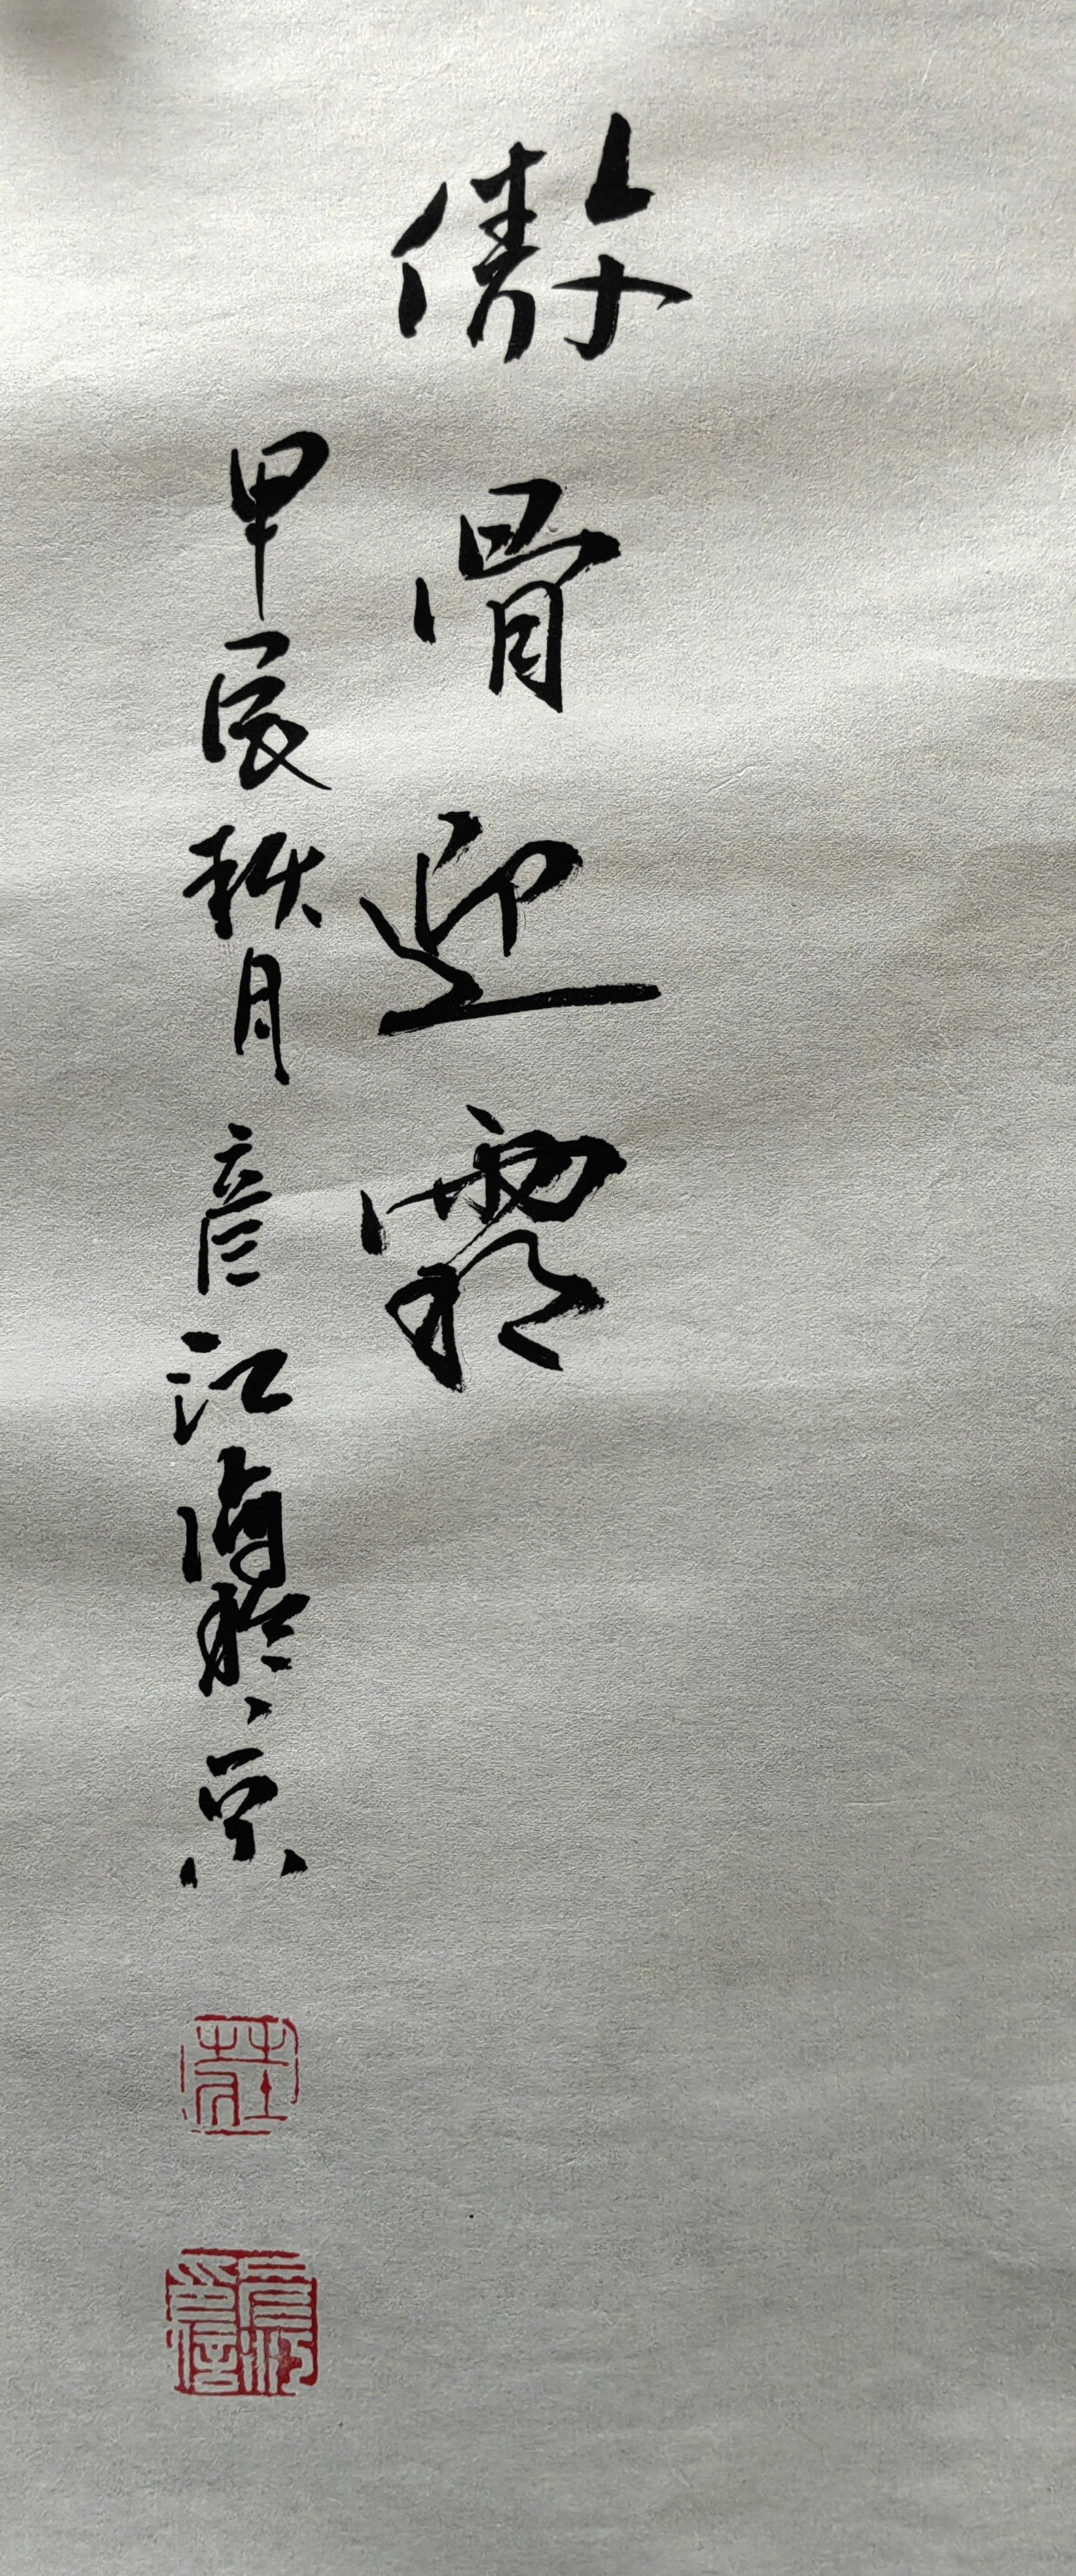 傲骨迎霜
甲辰秋月彦江写於京